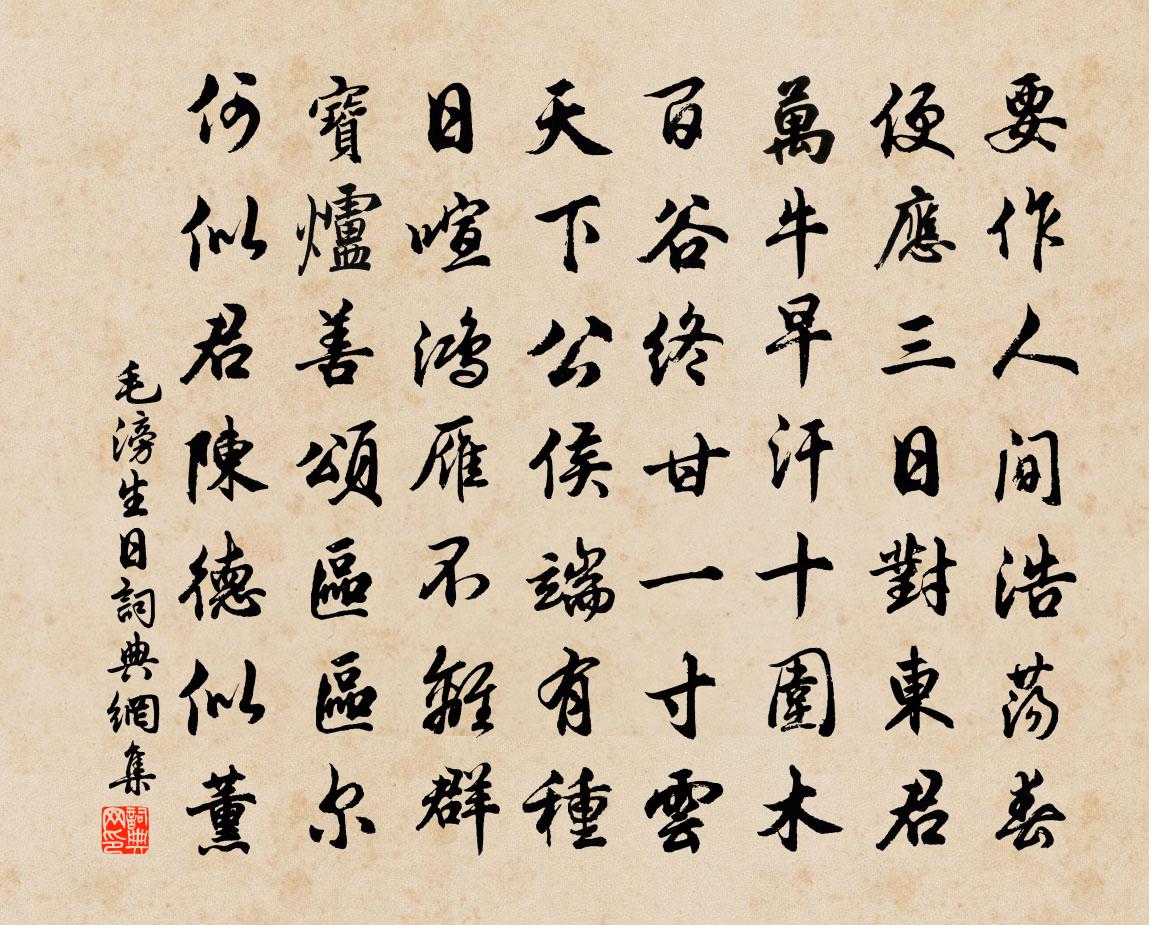 要作人間浩蕩春
便應三日對東君
萬牛早汗十圍木
百谷终甘一寸雲
天下公侯端有種
日喧鴻雁不離群
寶爐善頌區區尔
何似君陳德似薰
毛滂生日詞典網集
詞典网印